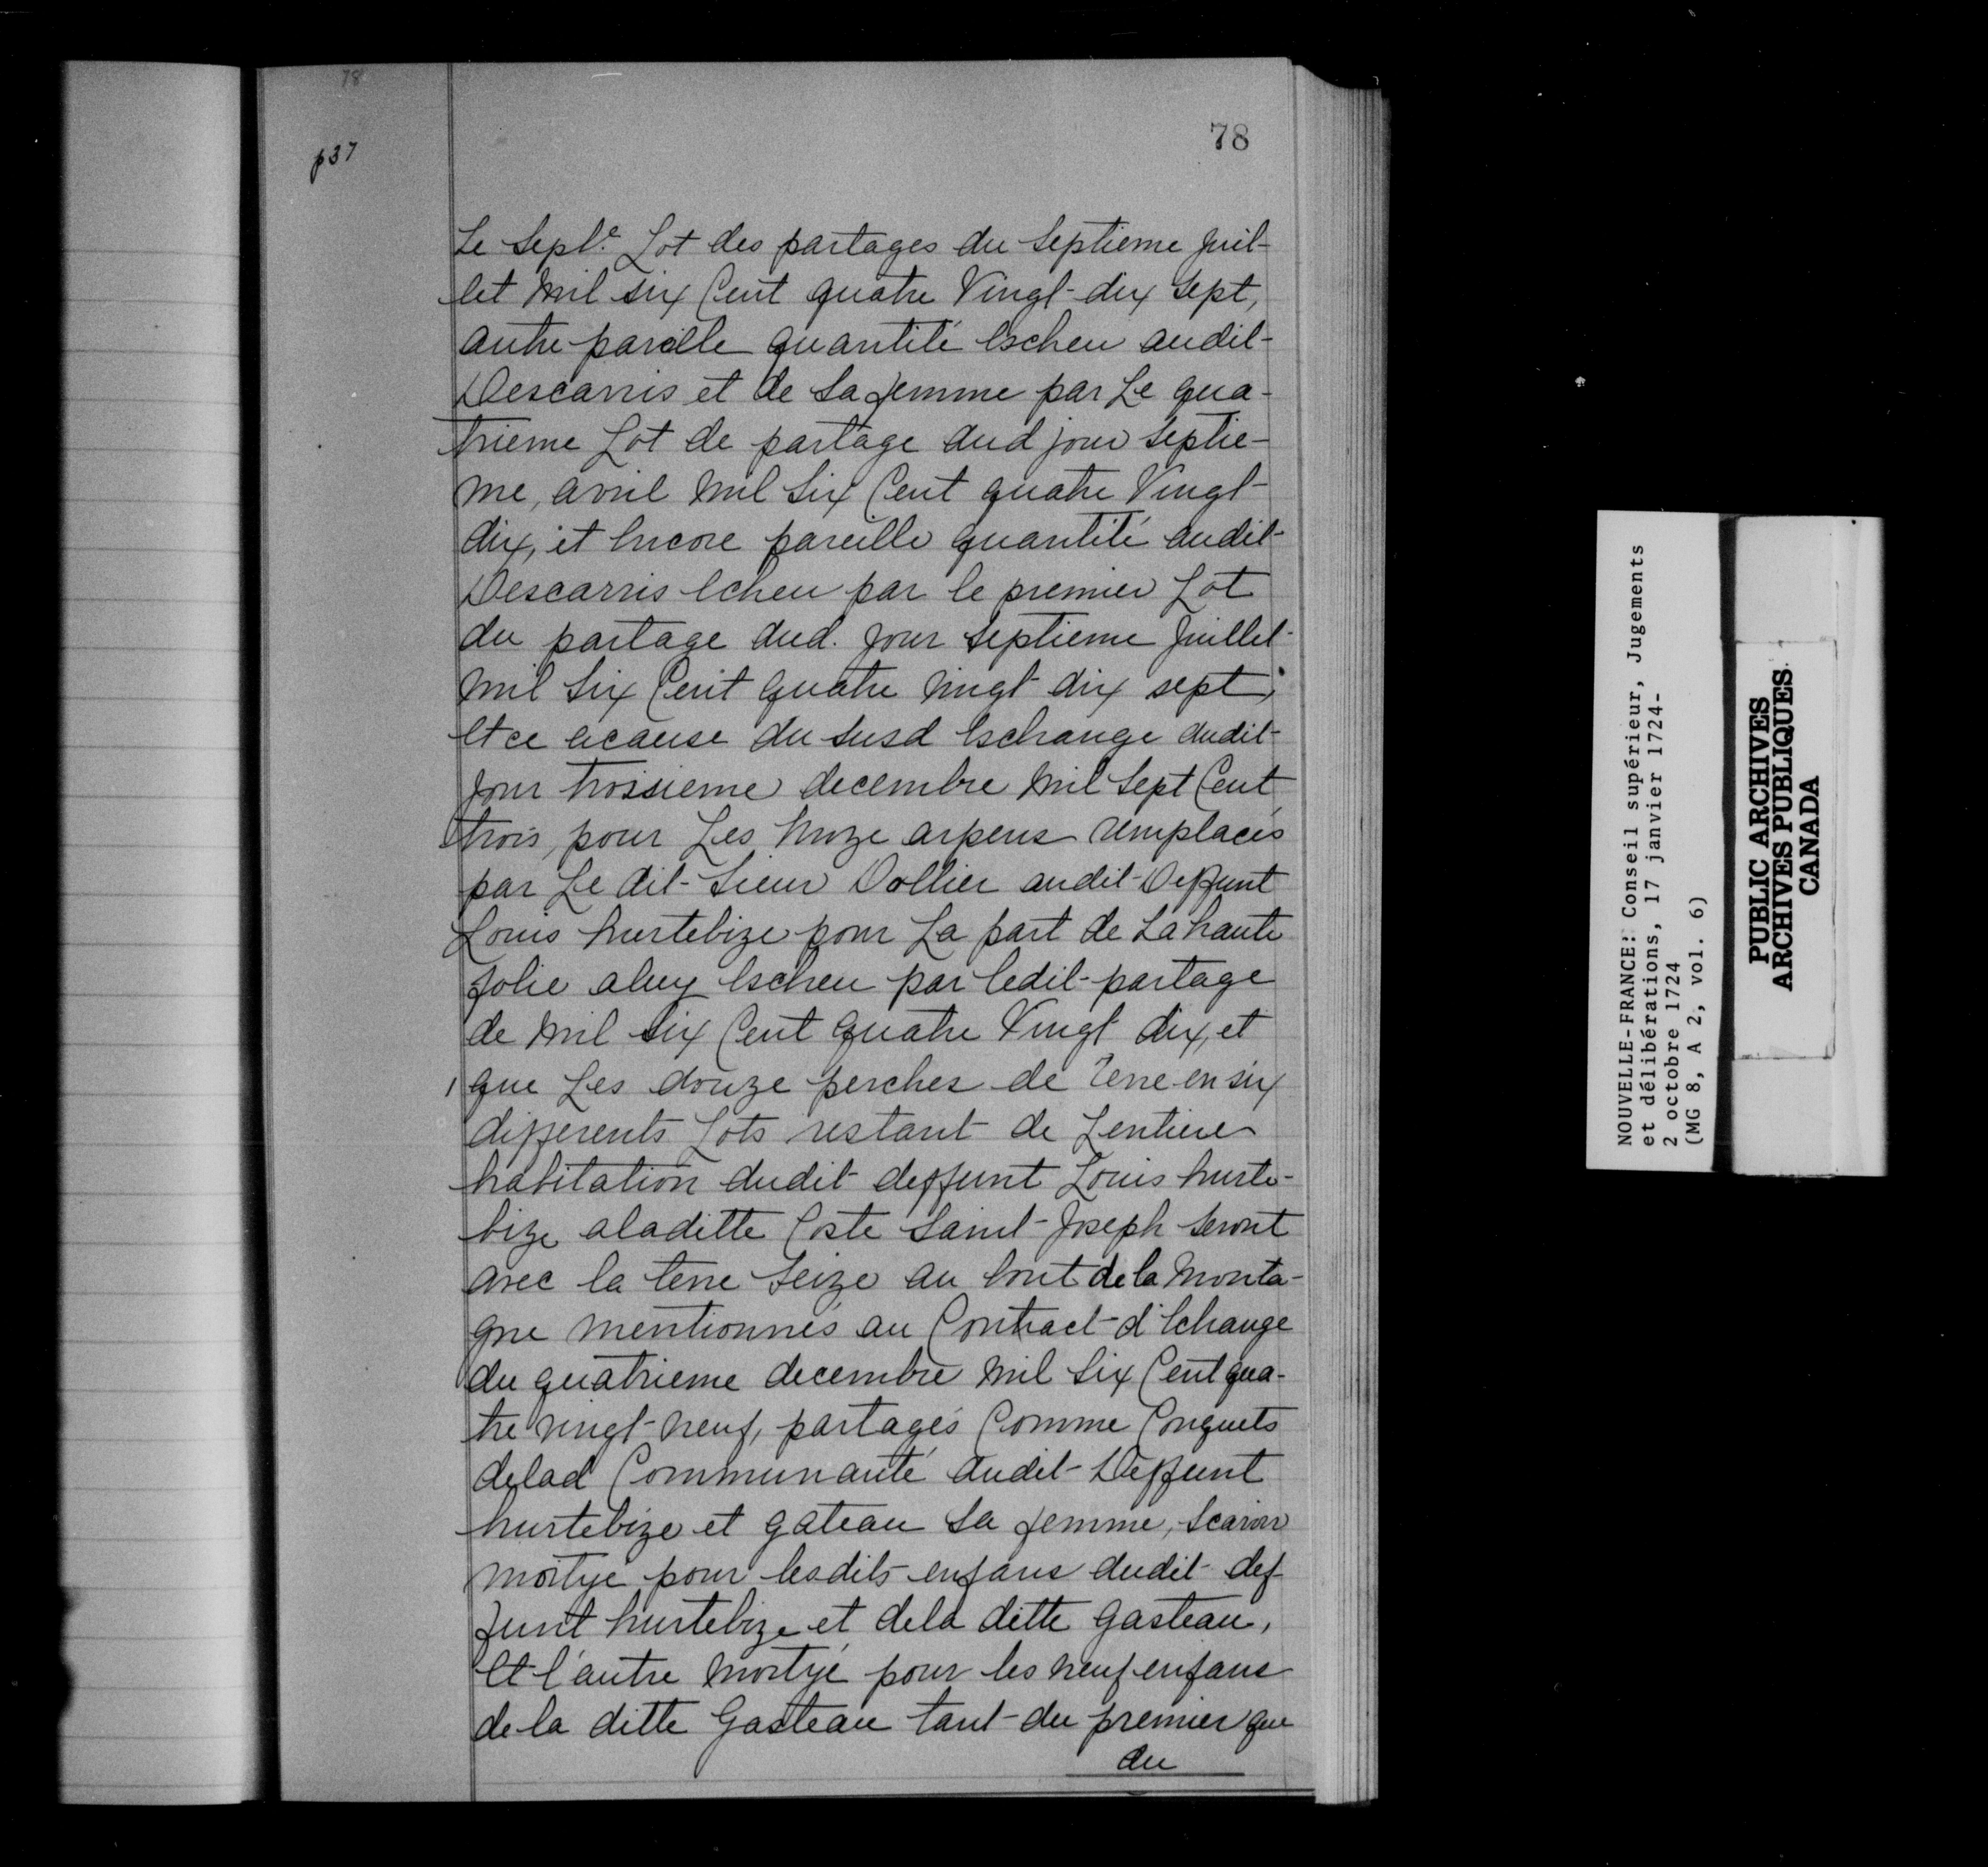 78
78
p37
Le Sept.e Lot des partages du Septieme Juil-
let mil six Cent quatre Vingt-dix Sept,
autre pareille quantité escheu audit-
Descarris et de Sa femme par Le qua-
trieme Lot de partage dud jour Septie-
me, avril mil Six Cent quatre Vingt-
dix, et encore pareille quantité audit-
Descarris echeu par le premier Lot
du partage dud. Jour Septieme Juillet-
mil Six Cent quatre vingt dix sept,
et ce acause du susd eschange dudit-
Jour troisieme decembre mil Sept Cent
trois, pour Les onze arpens remplacés
par Le dit-Sieur Dollier audit-Deffunt
Louis hurtebize pour La part de La haute
folie aluy escheu par ledit-partage
de mil Six Cent quatre Vingt dix, et
que Les douze perches de Terre en six
differents Lots restant de Lentiere
habitation dudit deffunt Louis hurte-
bize aladitte Coste Saint-Joseph Seront
avec la terre Seize au bout de la Monta-
gne mentionnés au Contract-d'Echange
du quatrieme decembre mil Six Cent qua-
tre vingt-neuf, partagés Comme Conquets
delad Communauté dudit-Deffunt
hurtebize et gateau Sa femme, Scavoir
moitye pour lesdits enfans dudit def
funt hurtebize et dela ditte gasteau,
Et l'autre moityé pour les neuf enfans
de la ditte Gasteau tant-du premier que
du
NOUVELLE-FRANCE: Conseil supérieur, Jugements
et délibérations, 17 janvier 1724-
2 octobre 1724
(MG 8, A 2, vol. 6)
PUBLIC ARCHIVES
ARCHIVES PUBLIQUES
CANADA